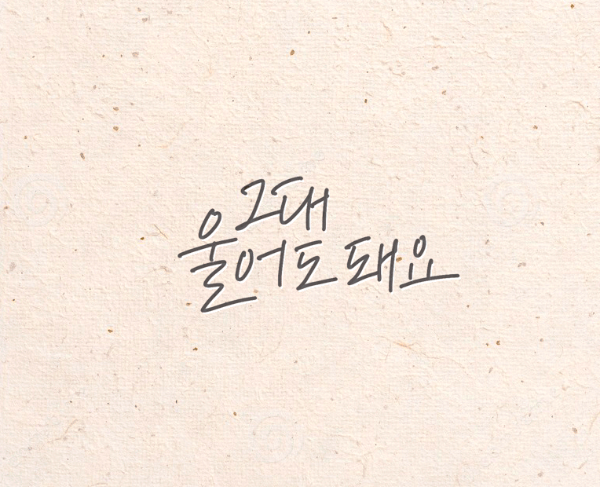 그대
울어도 돼요